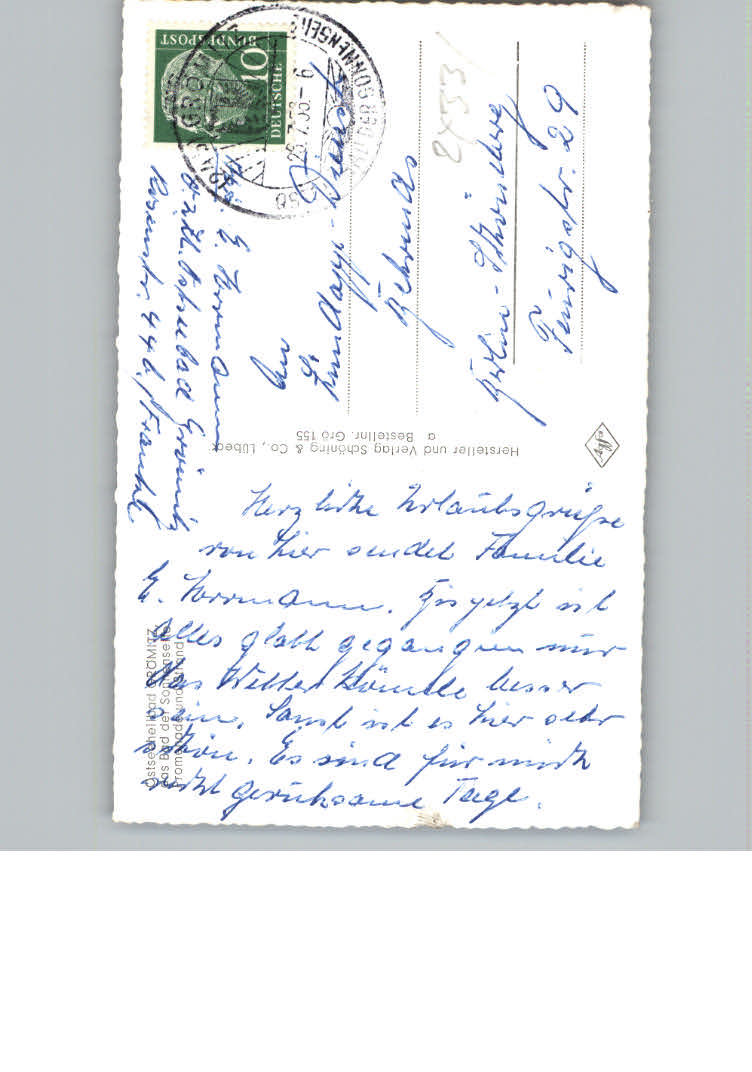 Herzliche Urlaubsgrüße
von hier sendet Familie
E. Horrmann. Bis jetzt ist
alles glatt gegangen nur
das Wetter könnte besser
sein. Sonst ist es hier sehr
schön. Es sind für mich
recht geruhsame Tage.
Ostseeheilbad GRÖMITZ
das Bad der Sonnenseite
Promenade und Strand
Hersteller und Verlag Schöning & Co., Lübeck
a Bestellnr. Grö 155
Abs. E. Horrmann
Ostseebad Grömitz
An
Behrends
Berlin-Schöneberg
Feurigstr. 29
2433
DEUTSCHE
BUNDESPOST
10
GRÖMITZ
SONNENSEITE